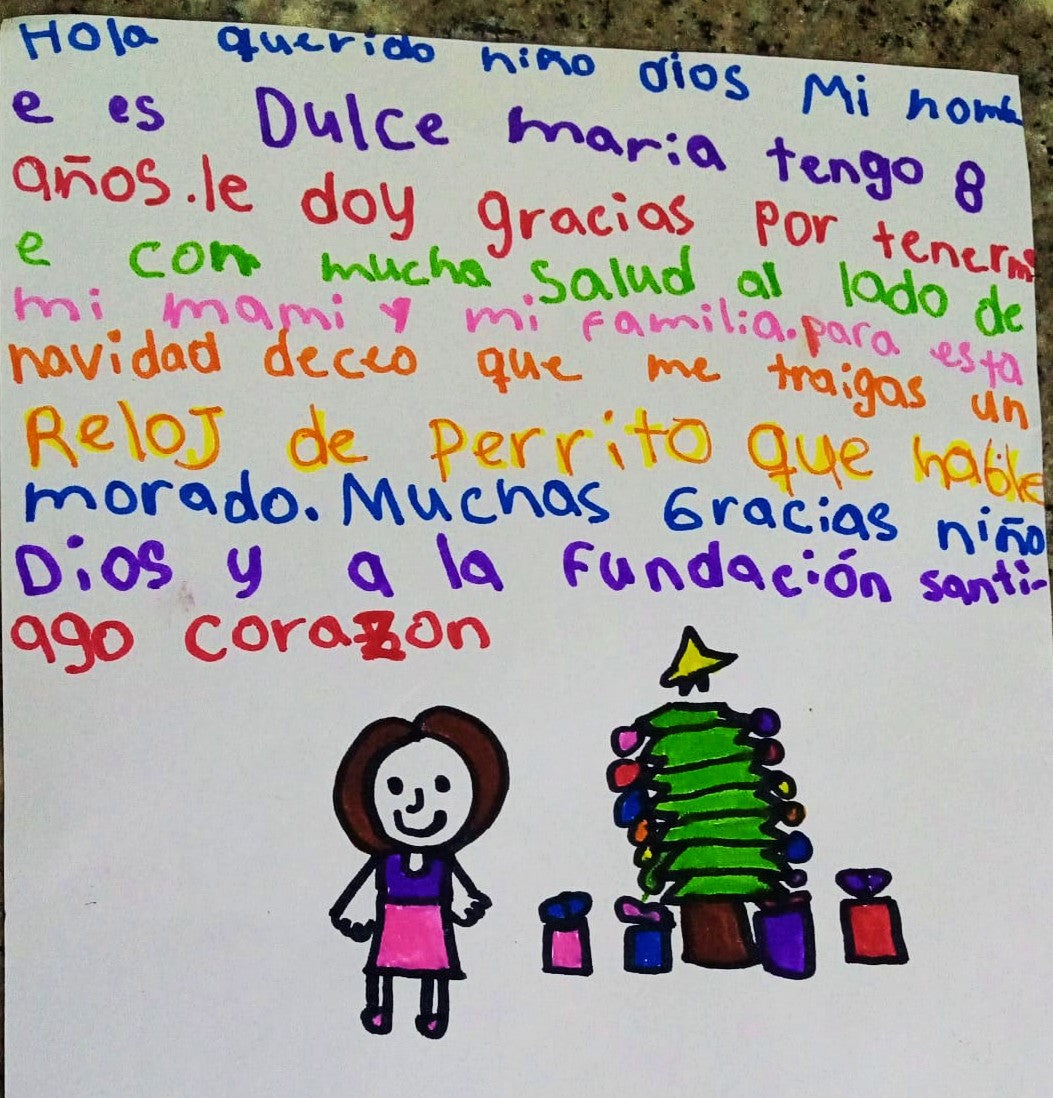 Hola querido niño dios Mi nomb
e es Dulce maria tengo 8
años.le doy gracias por tenerm
e con mucha salud al lado de
mi mami y mi familia.para esta
navidad deceo que me traigas un
Reloj de perrito que hable
morado. Muchas Gracias niño
Dios y a la Fundación santi-
ago corazon